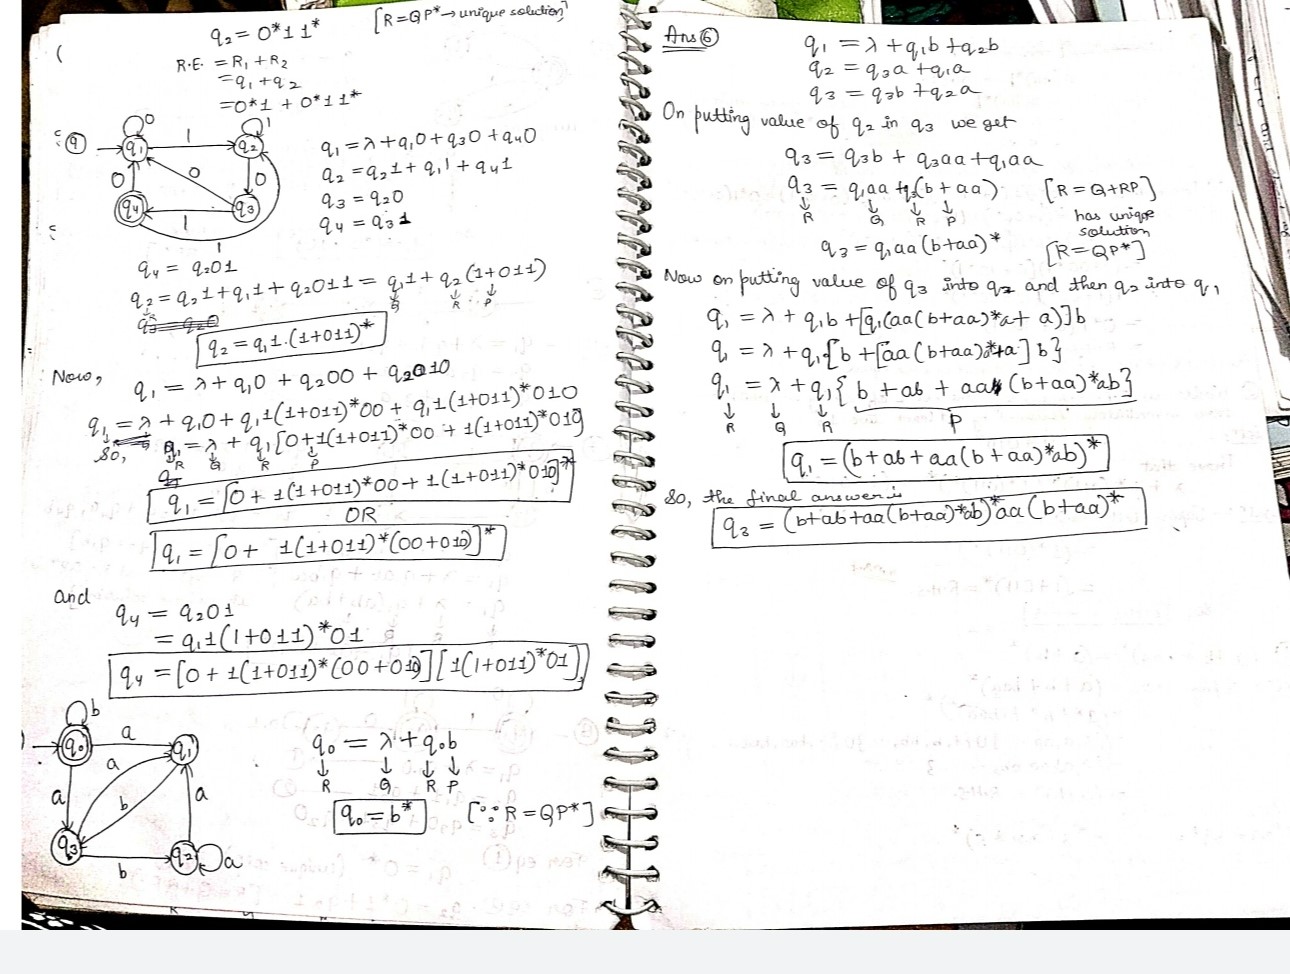 q₂ = 0*11* [R=QP*→unique solution]
R.E. = R₁+R₂
=q₁+q₂
=0*1 + 0*11*
9
0
1
1
q₁
q₂
0
0
0
q₄
q₃
1
1
q₁ = λ+q₁0+q₃0+q₄0
q₂ = q₂1+q₁1+q₄1
q₃ = q₂0
q₄ = q₃1
q₄ = q₂01
q₂ = q₂1+q₁1+q₂011 = q₁1+q₂(1+011)
R Q R P
q₂ = q₁1.(1+011)*
Now,
q₁ = λ+q₁0 + q₂00 + q₂010
q₁ = λ+q₁0+q₁1(1+011)*00 + q₁1(1+011)*010
So, q₁ = λ + q₁[0+1(1+011)*00 + 1(1+011)*010]
R Q R P
q₁ = [0+1(1+011)*00+1(1+011)*010]*
OR
q₁ = [0+ 1(1+011)*(00+010)]*
and
q₄ = q₂01
= q₁1(1+011)*01
q₄ = [0+1(1+011)*(00+010)][1(1+011)*01]
b
q₀
a
q₁
a
a
b
a
q₃
b
q₂
a
q₀ = λ+q₀b
R Q R P
q₀=b* [∵R=QP*]
Ans 6
q₁ = λ+q₁b+q₂b
q₂ = q₃a+q₁a
q₃ = q₃b+q₂a
On putting value of q₂ in q₃ we get
q₃ = q₃b + q₃aa+q₁aa
q₃ = q₁aa+q₃(b+aa) [R=Q+RP]
R Q R P
has unique
solution
q₃ = q₁aa(b+aa)* [R=QP*]
Now on putting value of q₃ into q₂ and then q₂ into q₁
q₁ = λ+ q₁b+[q₁(aa(b+aa)*a+ a)]b
q₁ = λ+q₁{b+[aa(b+aa)*a+a]b}
q₁ = λ+q₁{b+ab+aa(b+aa)*ab}
R Q R P
q₁ = (b+ab+aa(b+aa)*ab)*
So, the final answer is
q₃ = (b+ab+aa(b+aa)*ab)*aa(b+aa)*